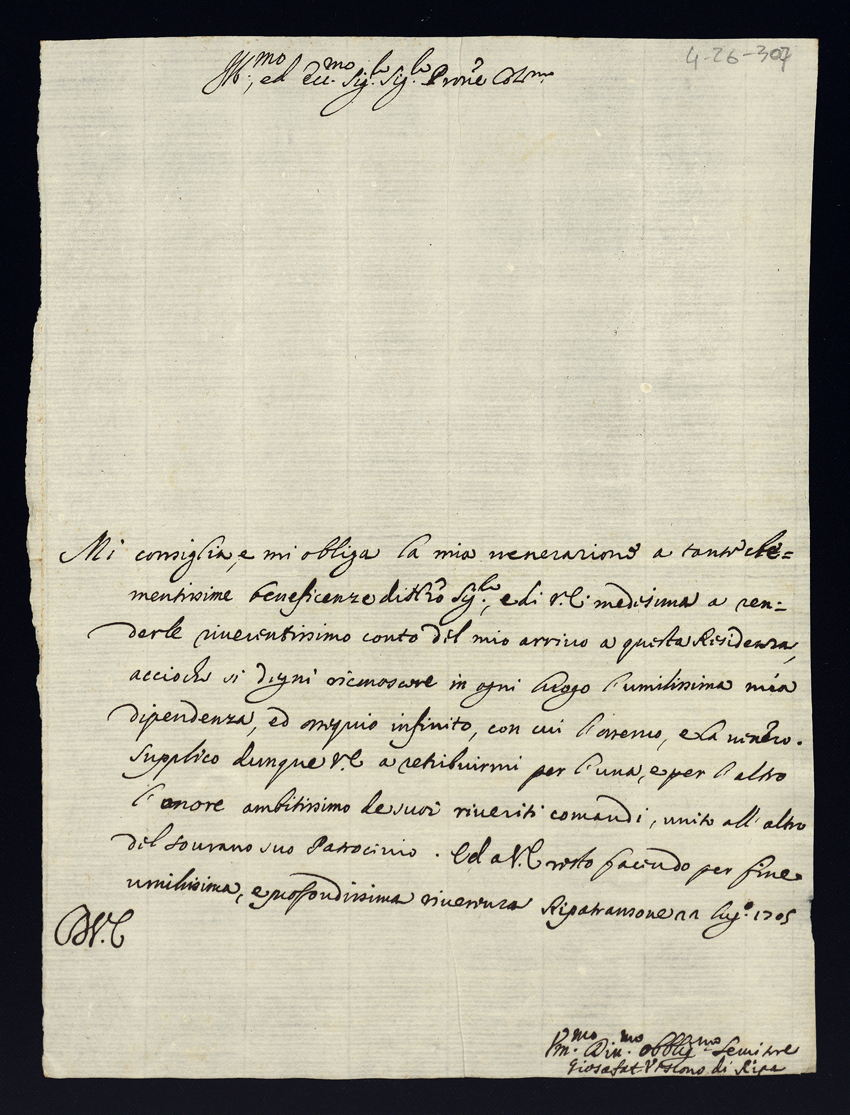 4-26-307
Ill.mo, ed Ecc.mo Sig.re Sig.re Prone Col.mo
Mi consiglia, e mi obliga la mia venerazione a tante cle=
mentissime beneficenze di Sig.re, e di V.E. medesima a ren=
derle riverentissimo conto del mio arrivo a questa Residenza,
accioche si degni riconoscere in ogni luogo l'umilissima mia
dipendenza, ed ossequio infinito, con cui l'osservo, e la venero.
Supplico dunque V.E. a retribuirmi per l'una, e per l'altro
l'onore ambitissimo de suoi riveriti comandi, unito all'altro
del sovrano suo Patrocinio. Ed a V.E. resto facendo per fine
umilissima, e profondissima riverenza Ripatransone 22 lug.o 1705
D.V.E.
Um.mo Div.mo Obblig.mo Servitore
Giosafat Vescovo di Ripa